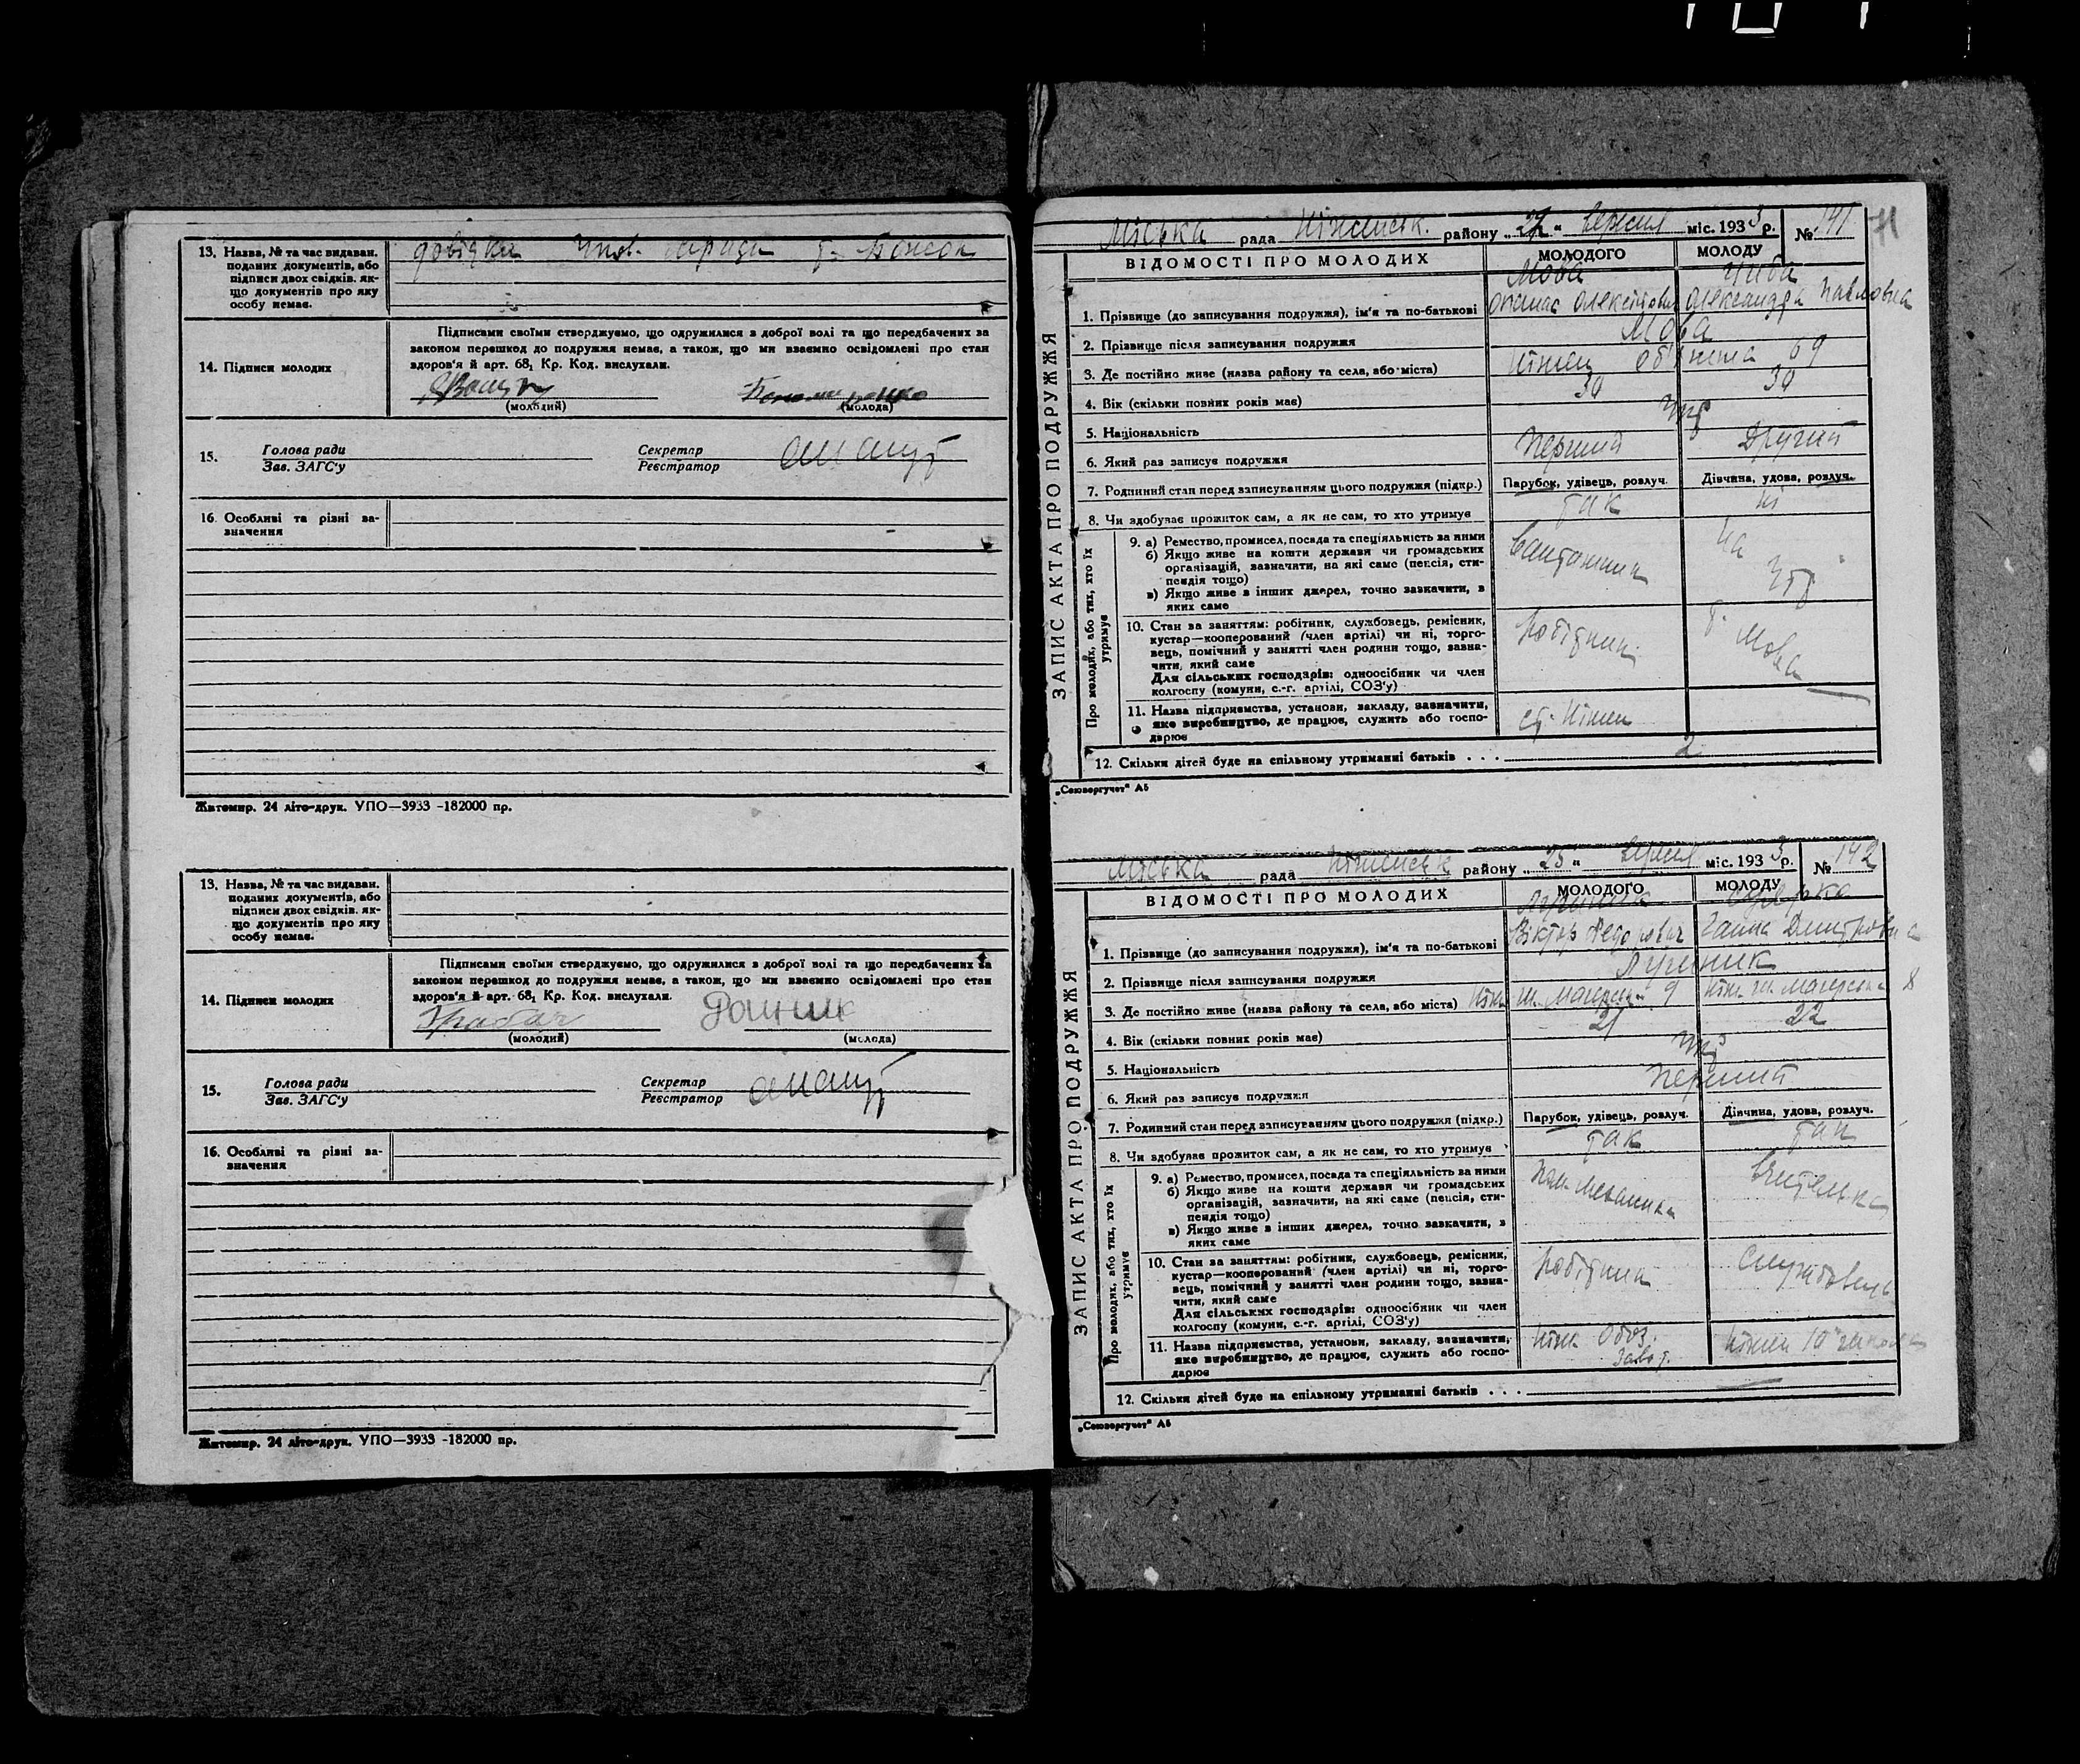 13. Назва, № та час видаван. поданих документів, або підписи двох свідків. якщо документів про яку особу немає.
довідка
14. Підписи молодих
Підписами своїми стверджуємо, що одружилися з доброї волі та що передбачених за
законом перешкод до подружжя немає, а також, що ми взаємно освідомлені про стан
здоров'я й арт. 68, Кр. Код. вислухали.
(молодий) (молода)
15. Голова ради Секретар
Зав. ЗАГС'у Реєстратор
16. Особливі та різні зазначення
Житомир. 24 літо-друк. УПО—3933 -182000 пр.
13. Назва, № та час видаван. поданих документів, або підписи двох свідків. якщо документів про яку особу немає.
14. Підписи молодих
Підписами своїми стверджуємо, що одружилися з доброї волі та що передбачених за
законом перешкод до подружжя немає, а також, що ми взаємно освідомлені про стан
здоров'я й арт. 68, Кр. Код. вислухали.
(молодий) (молода)
15. Голова ради Секретар
Зав. ЗАГС'у Реєстратор
16. Особливі та різні зазначення
Житомир. 24 літо-друк. УПО—3933 -182000 пр.
Міська рада Ніженськ. району „27" вересня міс. 1933 р. № 141
ЗАПИС АКТА ПРО ПОДРУЖЖЯ
ВІДОМОСТІ ПРО МОЛОДИХ МОЛОДОГО МОЛОДУ
Мова
1. Прізвище (до записування подружжя), ім'я та по-батькові Опанас Олексійович Олександра Павловна
2. Прізвище після записування подружжя Мова
3. Де постійно живе (назва району та села, або міста) Ніжен 69
4. Вік (скільки повних років має) 30 30
5. Національність Укр
6. Який раз записує подружжя Перший Другий
7. Родинний стан перед записуванням цього подружжя (підкр.) Парубок, удівець, розлуч. Дівчина, удова, розлуч.
8. Чи здобуває прожиток сам, а як не сам, то хто утримує так ні
Про молодих, або тих, хто їх утримує
9. а) Ремество, промисел, посада та спеціяльність за ними
б) Якщо живе на кошти держави чи громадських
організацій, зазначити, на які саме (пенсія, стипендія тощо)
в) Якщо живе з інших джерел, точно зазначити, з
яких саме
вантажник на утр
10. Стан за заняттям: робітник, службовець, ремісник,
кустар—кооперований (член артілі) чи ні, торговець, помічний у занятті член родини тощо, зазначити, який саме
Для сільських господарів: одноосібник чи член
колгоспу (комуни, с.-г. артілі, СОЗ'у)
робітник Мова
11. Назва підприємства, установи, закладу, зазначити,
яке виробництво, де працює, служить або господарює
ст. Ніжен
12. Скільки дітей буде на спільному утриманні батьків . . . 2
„Союзоргучет" А5
Міська рада Ніженськ району „25" вересня міс. 1933 р. № 142
ЗАПИС АКТА ПРО ПОДРУЖЖЯ
ВІДОМОСТІ ПРО МОЛОДИХ МОЛОДОГО МОЛОДУ
1. Прізвище (до записування подружжя), ім'я та по-батькові Віктор Федорович Ганна Дмитровна
2. Прізвище після записування подружжя
3. Де постійно живе (назва району та села, або міста) 9 8
4. Вік (скільки повних років має) 21 22
5. Національність Укр
6. Який раз записує подружжя Перший
7. Родинний стан перед записуванням цього подружжя (підкр.) Парубок, удівець, розлуч. Дівчина, удова, розлуч.
8. Чи здобуває прожиток сам, а як не сам, то хто утримує так так
Про молодих, або тих, хто їх утримує
9. а) Ремество, промисел, посада та спеціяльність за ними
б) Якщо живе на кошти держави чи громадських
організацій, зазначити, на які саме (пенсія, стипендія тощо)
в) Якщо живе з інших джерел, точно зазначити, з
яких саме
пом механика вчителька
10. Стан за заняттям: робітник, службовець, ремісник,
кустар—кооперований (член артілі) чи ні, торговець, помічний у занятті член родини тощо, зазначити, який саме
Для сільських господарів: одноосібник чи член
колгоспу (комуни, с.-г. артілі, СОЗ'у)
робітник Службовець
11. Назва підприємства, установи, закладу, зазначити,
яке виробництво, де працює, служить або господарює
Ніж. Обоз. Завод. Ніжен 10 школа
12. Скільки дітей буде на спільному утриманні батьків . . . —
„Союзоргучет" А5